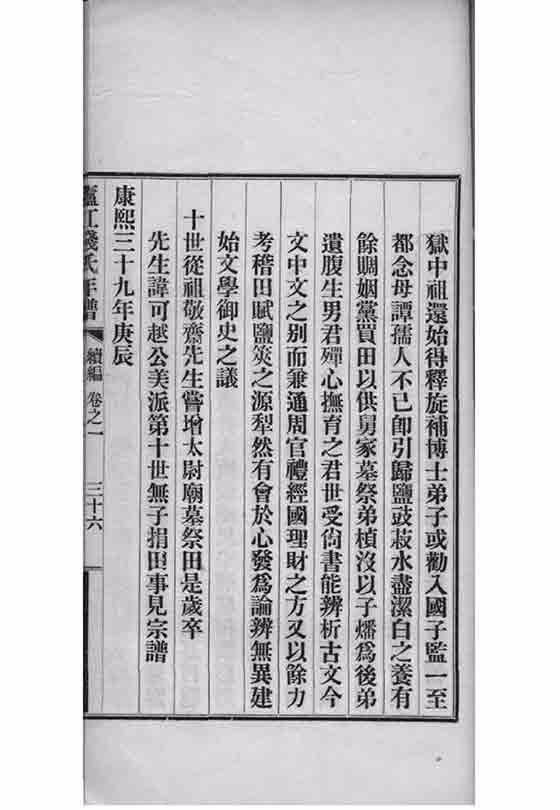 獄中祖還始得釋旋補博士弟子或勸入國子監一至
都念母譚孺人不已卽引歸鹽豉菽水盡潔白之養有
餘賙姻黨買田以供舅家墓祭弟楨沒以子燔爲後弟
遺腹生男君殫心撫育之君世受尙書能辨析古文今
文中文之别而兼通周官禮經國理財之方又以餘力
考稽田賦鹽筴之源犁然有會於心發爲論辨無異建
始文學御史之議
十世從祖敬齋先生嘗增太尉廟墓祭田是歲卒
先生諱可越公美派第十世無子捐田事見宗譜
康熙三十九年庚辰
廬江錢氏年譜 續編 卷之一 三十六